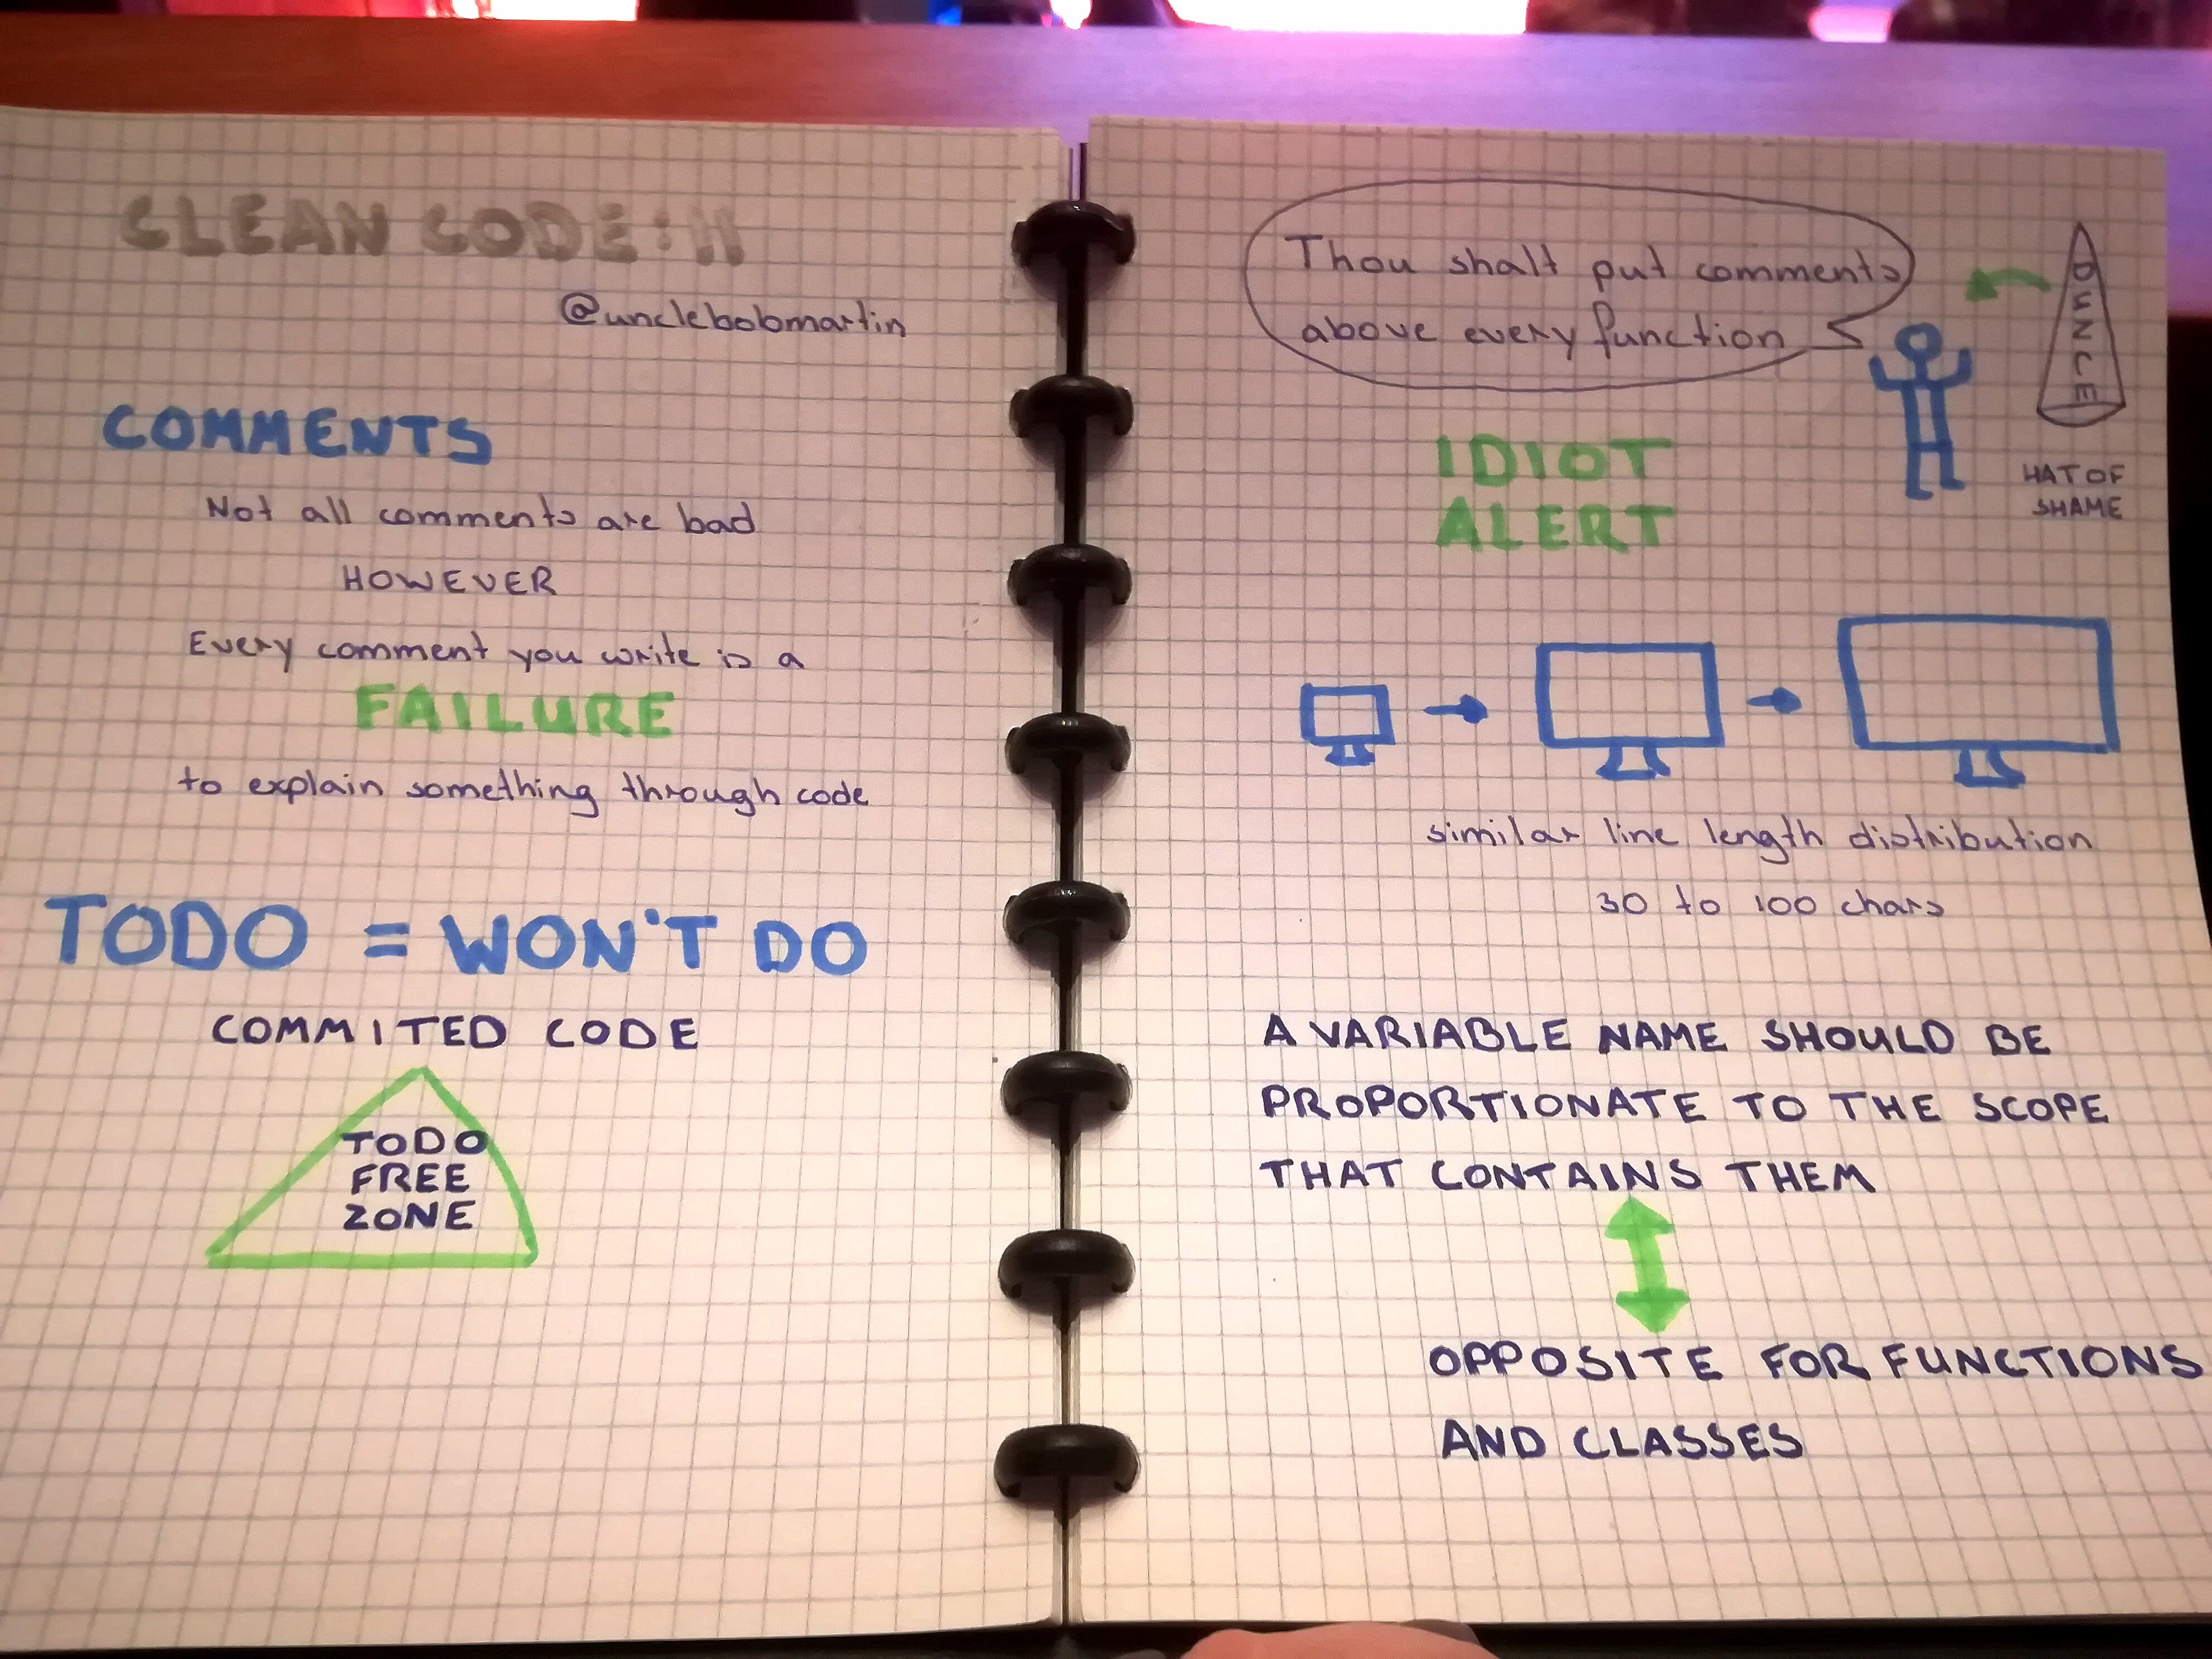 CLEAN CODE: II
@unclebobmartin
COMMENTS
Not all comments are bad
HOWEVER
Every comment you write is a
FAILURE
to explain something through code
TODO = WON'T DO
COMMITED CODE
TODO
FREE
ZONE
Thou shalt put comments
above every function
DUNCE
HAT OF
SHAME
IDIOT
ALERT
similar line length distribution
30 to 100 chars
A VARIABLE NAME SHOULD BE
PROPORTIONATE TO THE SCOPE
THAT CONTAINS THEM
OPPOSITE FOR FUNCTIONS
AND CLASSES